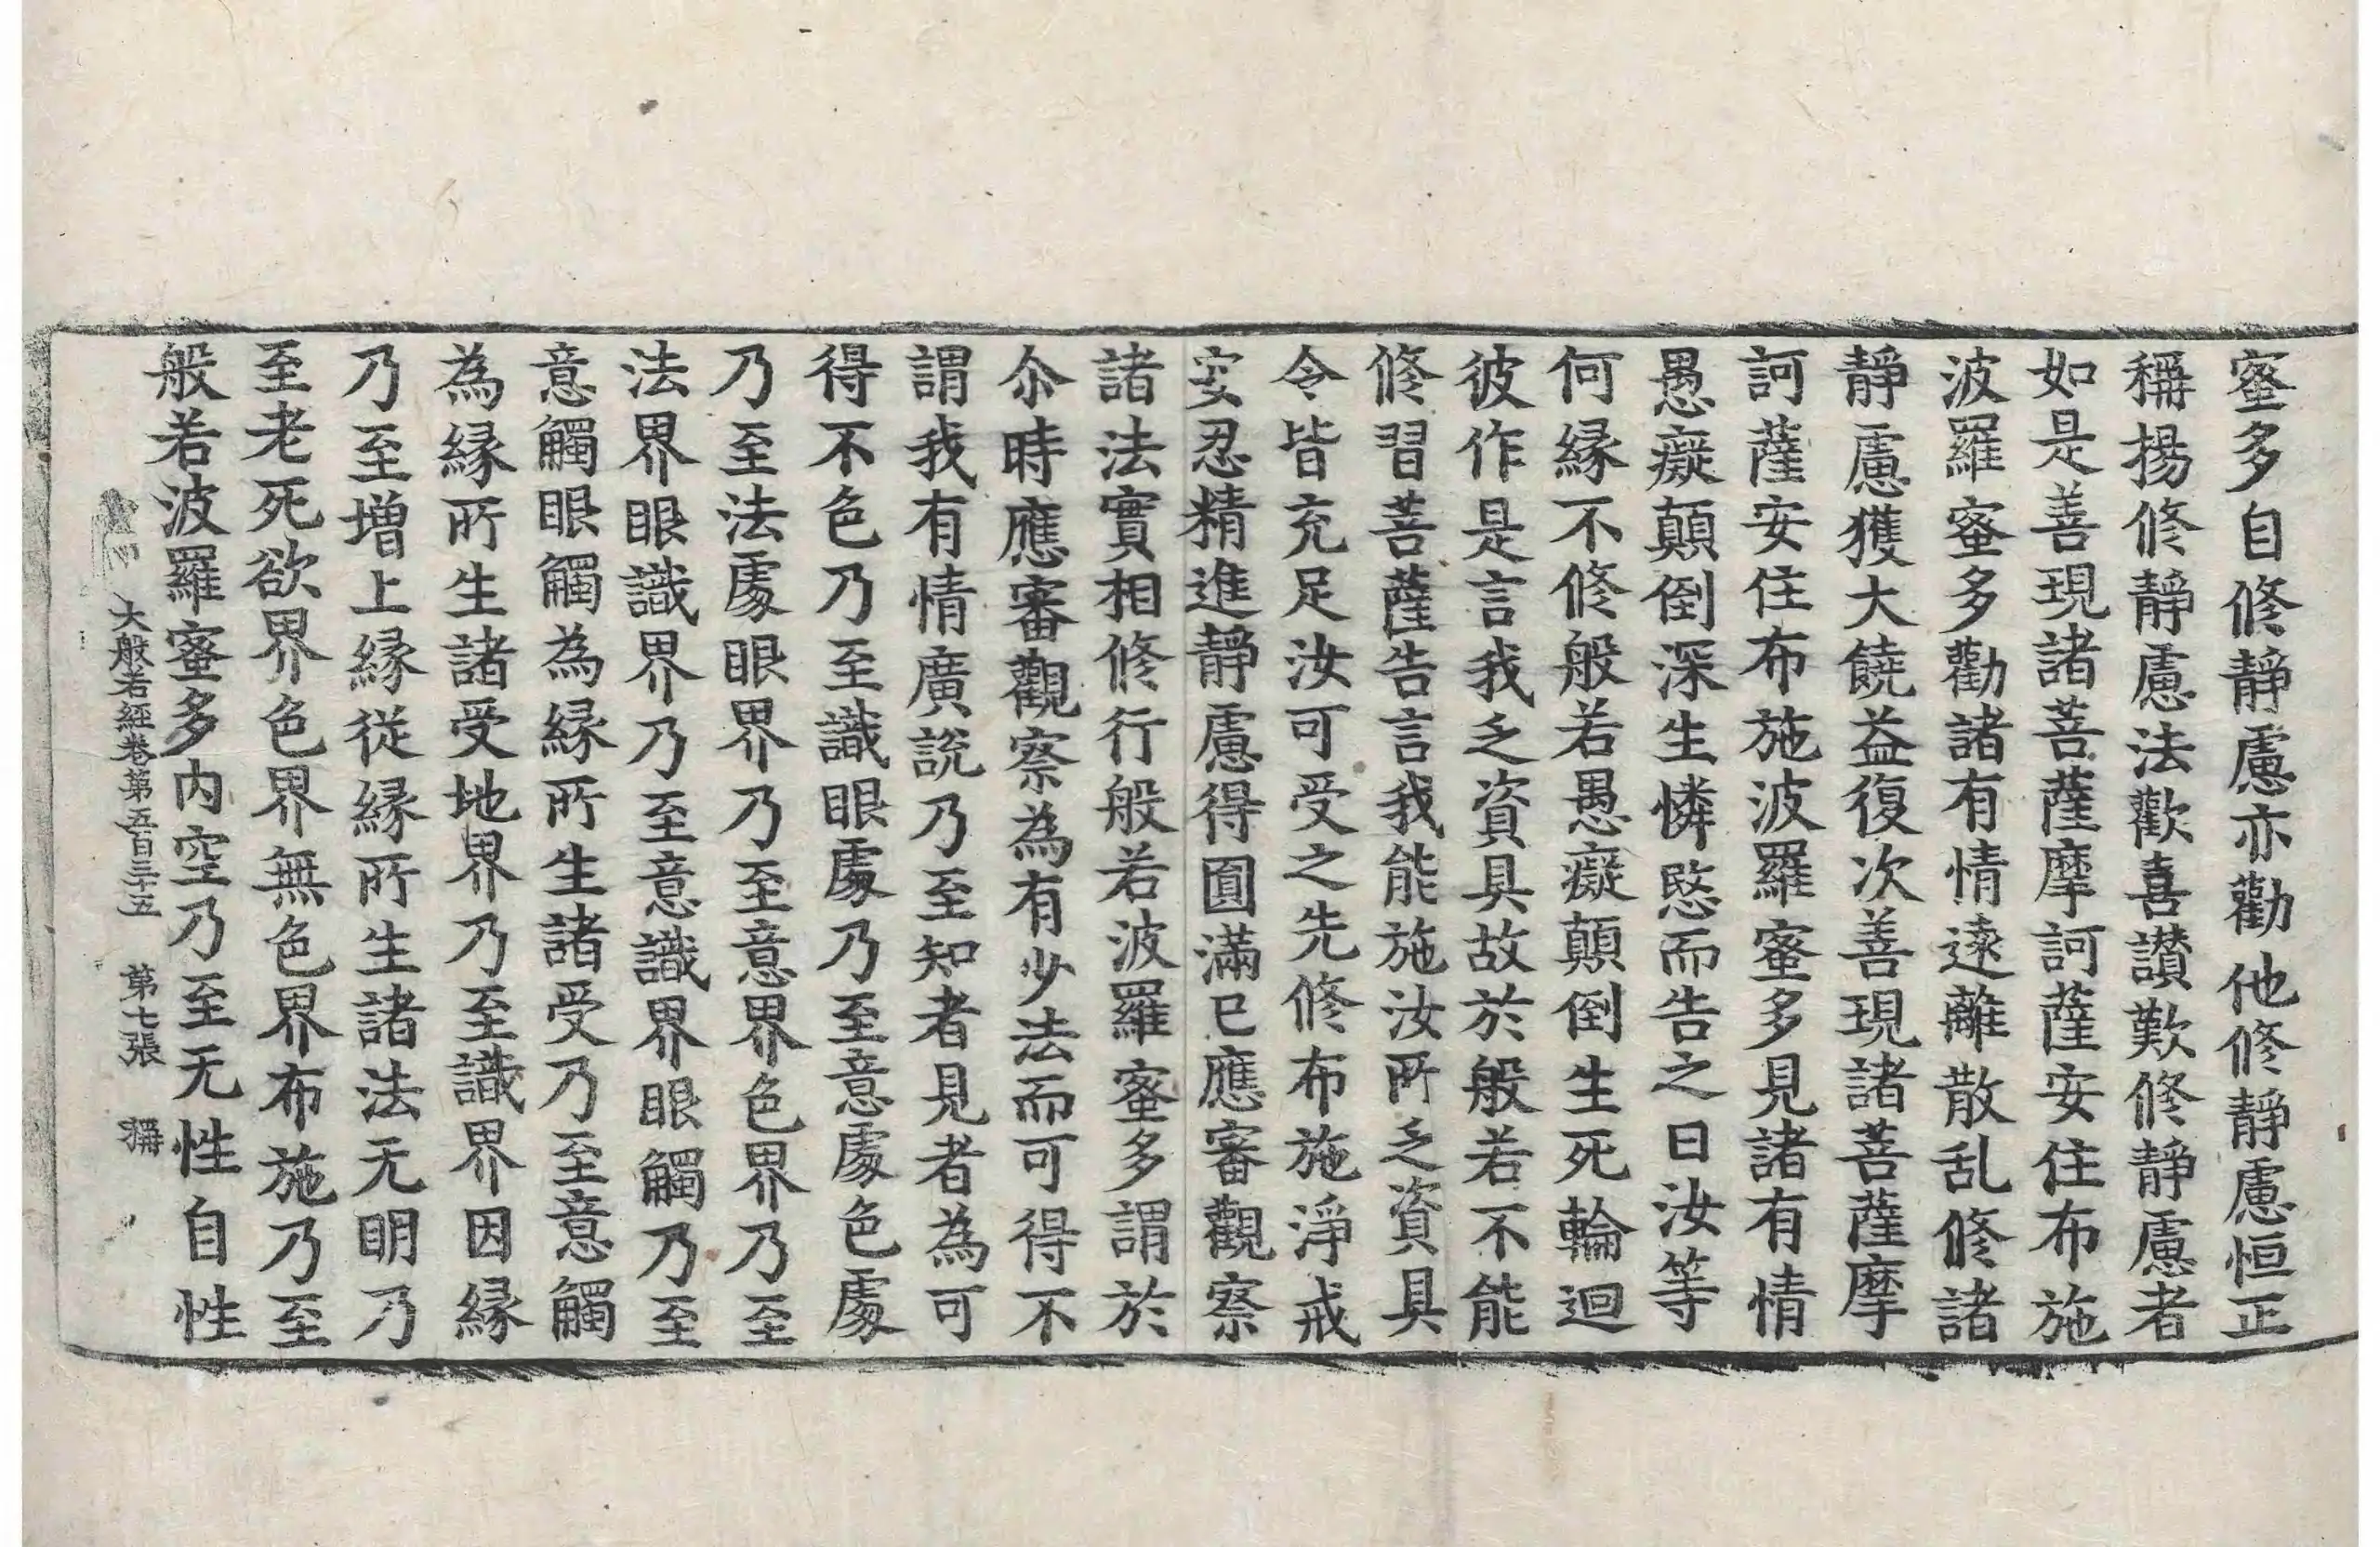 蜜多自修靜慮亦勸他修靜慮恒正
稱揚修靜慮法歡喜讃歎修靜慮者
如是善現諸菩薩摩訶薩安住布施
波羅蜜多勸諸有情遠離散乱修諸
靜慮獲大饒益復次善現諸菩薩摩
訶薩安住布施波羅蜜多見諸有情
愚癡顛倒深生憐愍而告之曰汝等
何緣不修般若愚癡顛倒生死輪迴
彼作是言我乏資具故於般若不能
修習菩薩告言我能施汝所乏資具
令皆充足汝可受之先修布施淨戒
安忍精進靜慮得圓滿已應審觀察
諸法實相修行般若波羅蜜多謂於
尒時應審觀察為有少法而可得不
謂我有情廣說乃至知者見者為可
得不色乃至識眼處乃至意處色處
乃至法處眼界乃至意界色界乃至
法界眼識界乃至意識界眼觸乃至
意觸眼觸為緣所生諸受乃至意觸
為緣所生諸受地界乃至識界因緣
乃至增上緣從緣所生諸法无明乃
至老死欲界色界無色界布施乃至
般若波羅蜜多内空乃至无性自性
大般若經卷第五百三十五　第七張　稱